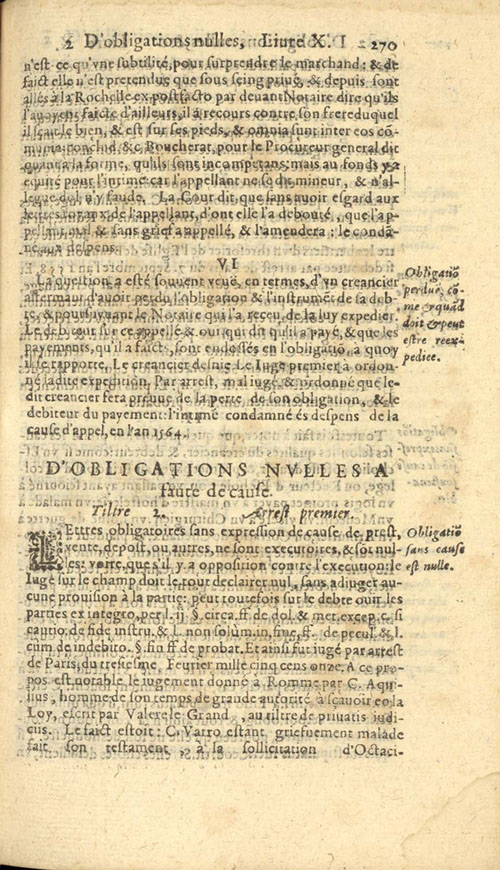 2 D'obligations nulles, Liure X. I 270
n'est ce qu'vne subtilité, pour surprendre le marchand: & de
faict elle n'est pretendue que sous seing priué, & depuis sont
allés à la Rochelle ex postfacto par deuant Notaire dire qu'ils
l'auoyent faicte d'ailleurs, il a recours contre son frere duquel
il sçait le bien, & est sur ses pieds, & omnia sunt inter eos cō-
munia &c. Boucherat, pour le Procureur general dit
quant à la forme, qu'ils sont incompetans: mais au fonds y a
equité pour l'intimé car l'appellant ne se dit mineur, & n'al-
legue dol, n'y faude. La Cour dit, que sans auoir esgard aux
lettres royaux de l'appellant, d'ont elle l'a debouté, que l'ap-
pellant mal & sans grief a appellé, & l'amendera: le condā-
ne aux despens.
VI
La question a esté souuent veuë, en termes, d'vn creancier
affermant d'auoir perdu l'obligation & l'instrument de sa deb-
te, & poursuyuant le Notaire qui l'a receu, de la luy expedier.
Le debteur sur ce appellé & oui, qui dit qu'il a payé, & que les
payements, qu'il a faicts, sont endossés en l'obligatiō, a quoy
il se rapporte. Le creancier desnie. Le Iuge premier a ordon-
né ladite expedition. Par arrest, mal iugé, & ordonné que le-
dit creancier fera preuue de la perte de son obligation, & le
debiteur du payement: l'intimé condamné és despens de la
cause d'appel, en l'an 1564.
Obligatiō
perdue, cō-
me & quād
doit & peut
estre reex-
pediee.
D'OBLIGATIONS NVLLES A
faute de cause.
Tiltre 2. Arrest premier.
LEttres obligatoires sans expression de cause de prest,
vente, depost, ou autres, ne sont executoires, & sōt nul-
les: voire, que s'il y a opposition contre l'execution: le
Iuge sur le champ doit le tout declairer nul, sans adiuger au-
cune prouision à la partie: peut toutefois sur le debte ouir les
parties ex integro, per l. ij. §. circa. ff. de dol. & met. excep. c. si
cautio. de fide instru. & l. non solùm. in fine. ff. de pecul. & l.
cùm de indebito. §. fin ff. de probat. Et ainsi fut iugé par arrest
de Paris, du tresiesme Feurier mille cinq cens onze. A ce pro-
pos est notable le iugement donné à Romme par C. Aqui-
lius, homme de son temps de grande autorité à sçauoir en la
Loy, escrit par Valere le Grand, au tiltre de priuatis iudi-
ciis. Le faict estoit: C. Varro estant griefuement malade
fait son testament, à la sollicitation d'Octaci-
Obligatiō
sans cause
est nulle.